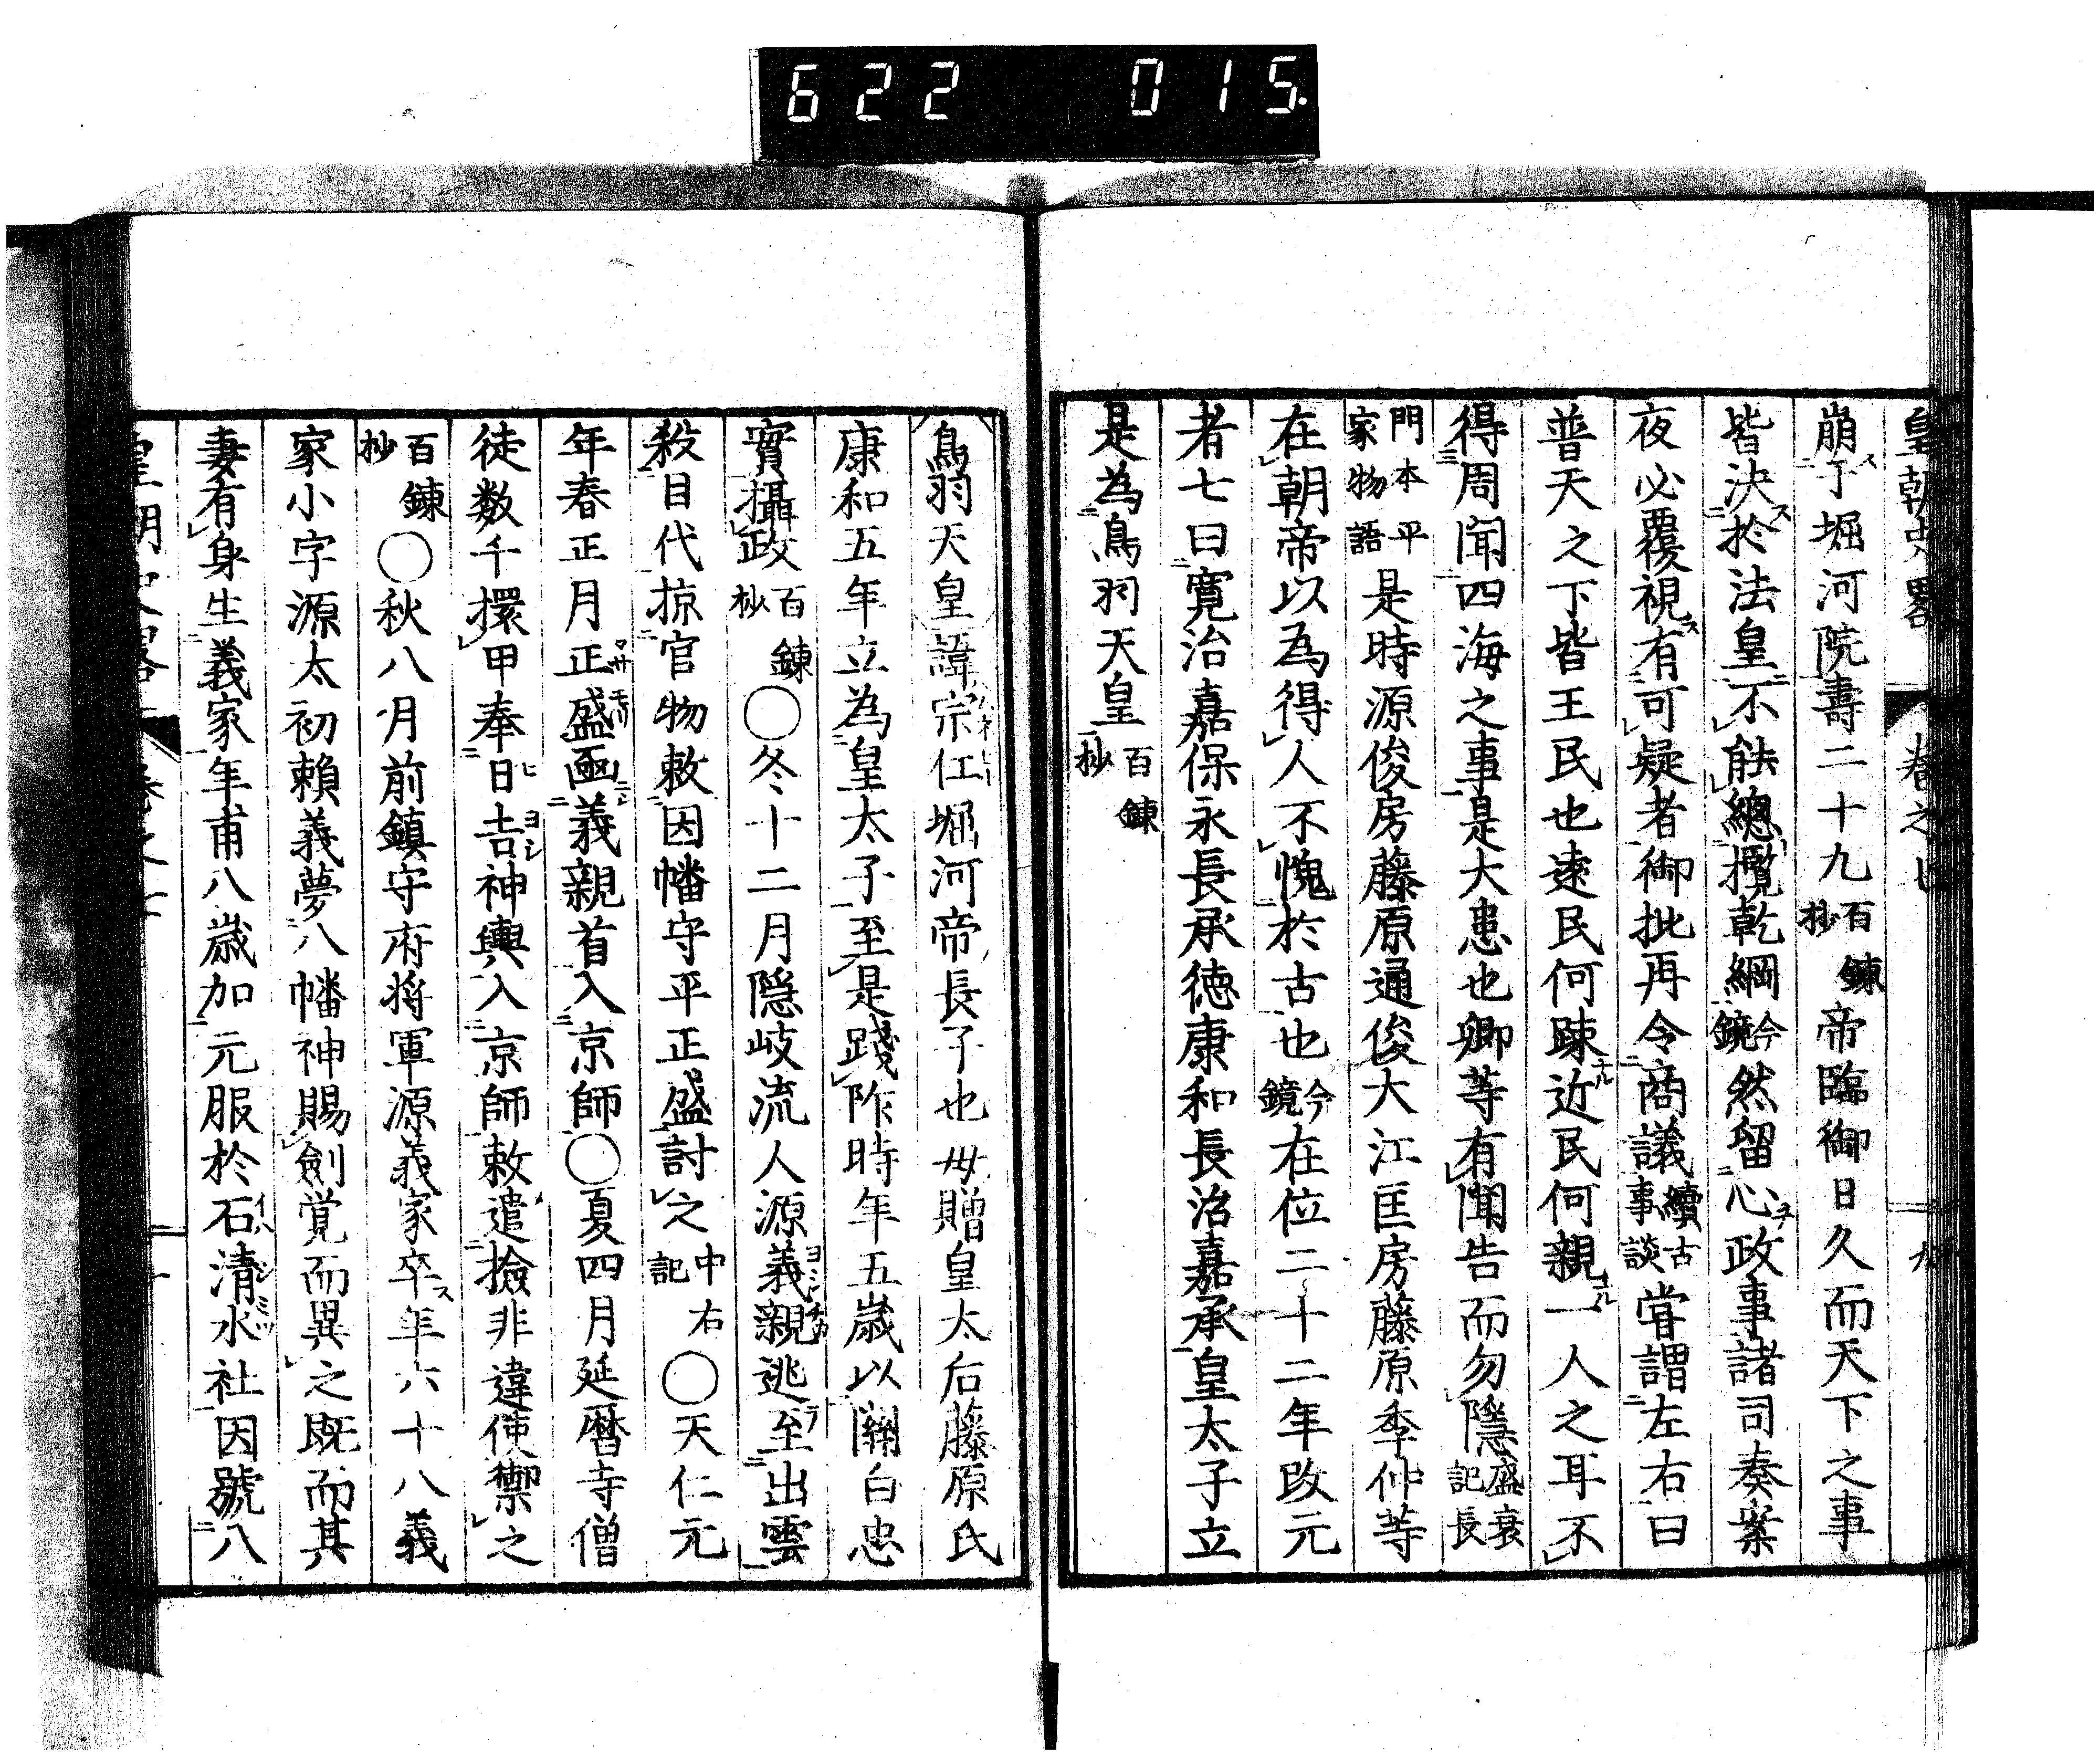 622 015.
皇朝史畧 卷之七 九
崩于堀河院壽二十九百鍊抄帝臨御日久而天下之事
皆決於法皇不能總攬乾綱今鏡然留心政事諸司奏案
夜必覆視有可疑者御批再令商議續古事談嘗謂左右曰
普天之下皆王民也遠民何踈近民何親一人之耳不
得周聞四海之事是大患也卿等有聞告而勿隱盛衰記長
門本平家物語是時源俊房藤原通俊大江匡房藤原季仲等
在朝帝以為得人不愧於古也今鏡在位二十二年改元
者七曰寛治嘉保永長承徳康和長治嘉承皇太子立
是為鳥羽天皇百鍊抄
鳥羽天皇諱宗仁堀河帝長子也母贈皇太后藤原氏
康和五年立為皇太子至是踐阼時年五歳以關白忠
實攝政百鍊抄〇冬十二月隱岐流人源義親逃至出雲
殺目代掠官物敕因幡守平正盛討之中右記〇天仁元
年春正月正盛函義親首入京師〇夏四月延暦寺僧
徒数千擐甲奉日吉神輿入京師敕遣撿非違使禦之
百鍊抄〇秋八月前鎮守府将軍源義家卒年六十八義
家小字源太初頼義夢八幡神賜劍覚而異之既而其
妻有身生義家年甫八歳加元服於石清水社因號八